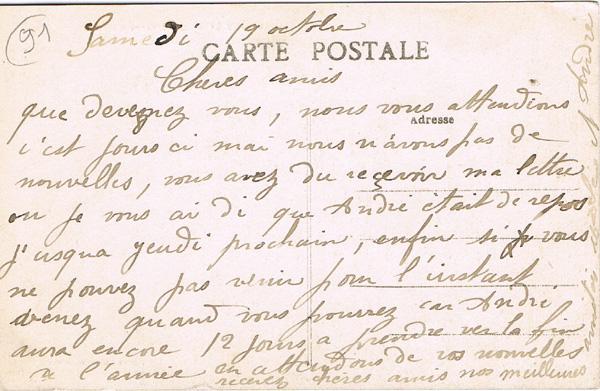 91
Samedi 19 octobre
CARTE POSTALE
Chères amis
que devegnez vous, nous vous attendions
Adresse
c'est jours ci mai nous n'avons pas de
nouvelles, vous avez du reçevoir ma lettre
ou je vous ai di que André était de repos
j'usqua jeudi prochain, enfin si vous
ne pouvez pas venir pour l'instant
venez quand vous pourrez car André
aura encore 12 jours a prendre ver la fin
de l'année en attendons de vos nouvelles
recevez chères amis nos meilleures
et André